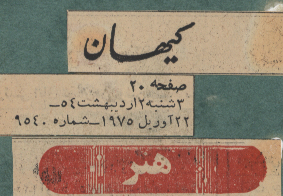 کیهان
صفحه ۲۰
۳شنبه ۲ اردیبهشت ۵۴ـ
۲۲ آوریل ۱۹۷۵ـ شماره ۹۵۴۰
هنر